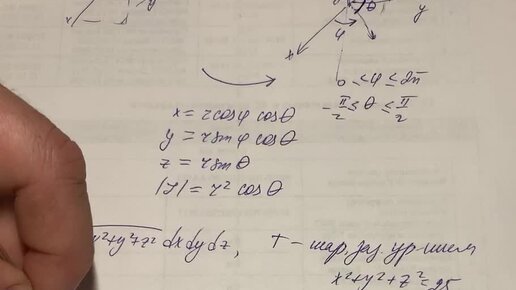 x
y
θ
y
φ
x
0 ≤ φ ≤ 2π
-π/2 ≤ θ ≤ π/2
x = r cosφ cosθ
y = r sinφ cosθ
z = r sinθ
|J| = r² cosθ
y²+y²+z² dx dy dz, T – шар, зад. ур-нием
x²+y²+z²=25